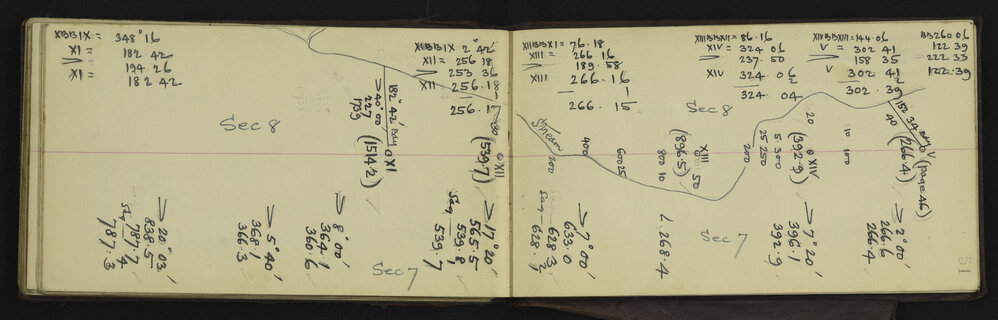 XIBBIX = 348° 16
XI = 182 42
194 26
XI = 182 42
Sec 8
182° 42' Bdy
> 40° 00'
227
1739
⊙ XI
(1514.2)
> 20° 03'
838.5
Sag 787.4
787.3
> 5° 40'
368.1
366.3
> 8° 00'
364.1
360.6
Sec 7
XIIBBIX 2° 42'
XII = 256 18
253 36
XII 256.18
256.17
⊙ XII
(539.7)
> 17° 20'
565.5
539.8
Sag
539.7
XIIIBBXI = 76.18
XIII = 266 16
189.58
XIII 266.16
1
266.15
Stream
200
400
600 25
800 10
XIII
⊙ 50
(896.5)
> 7° 00'
633.0
628.3
Sag 628.2
L.268.4
XIIIBBXII = 86.16
XIV = 324 06
237.50
XIV 324.06
2
324.04
Sec 8
200
25 250
5 300
⊙ XIV
(392.9)
20
Sec 7
> 7° 20'
396.1
392.9
XIVBBXIII = 144.06
V = 302 41
158 35
V 302 41
2
302.39
10 100
BB 260 06
122 39
222 33
122.39
152 34
40
V
(266.4)
(page 46)
> 2° 00'
266.6
266.4
51